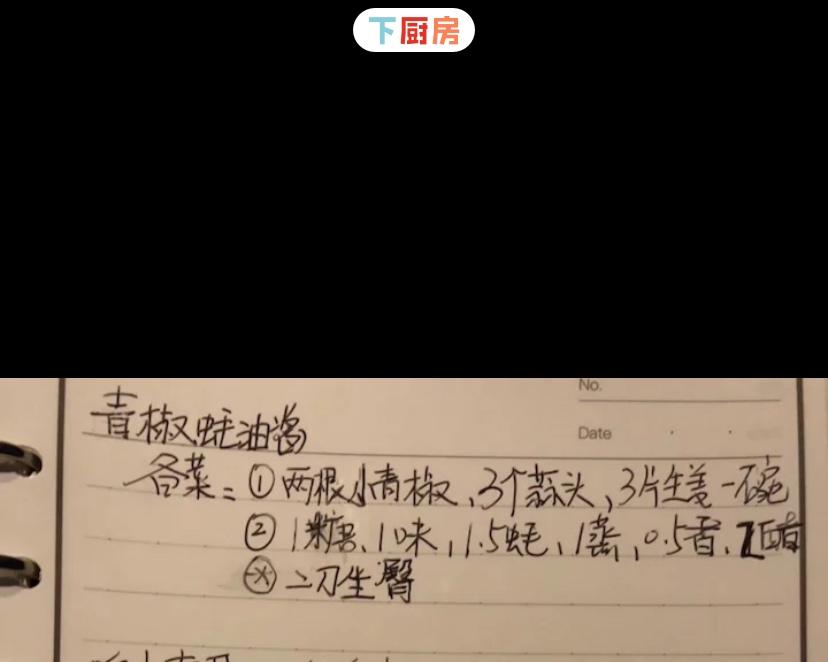 下厨房
No.
青椒蚝油酱
Date
备菜：① 两根小青椒，3个蒜头，3片生姜一碗
② 1糖、1味，1.5蚝，1蒸，0.5香，1醋
※ 二刀生臀